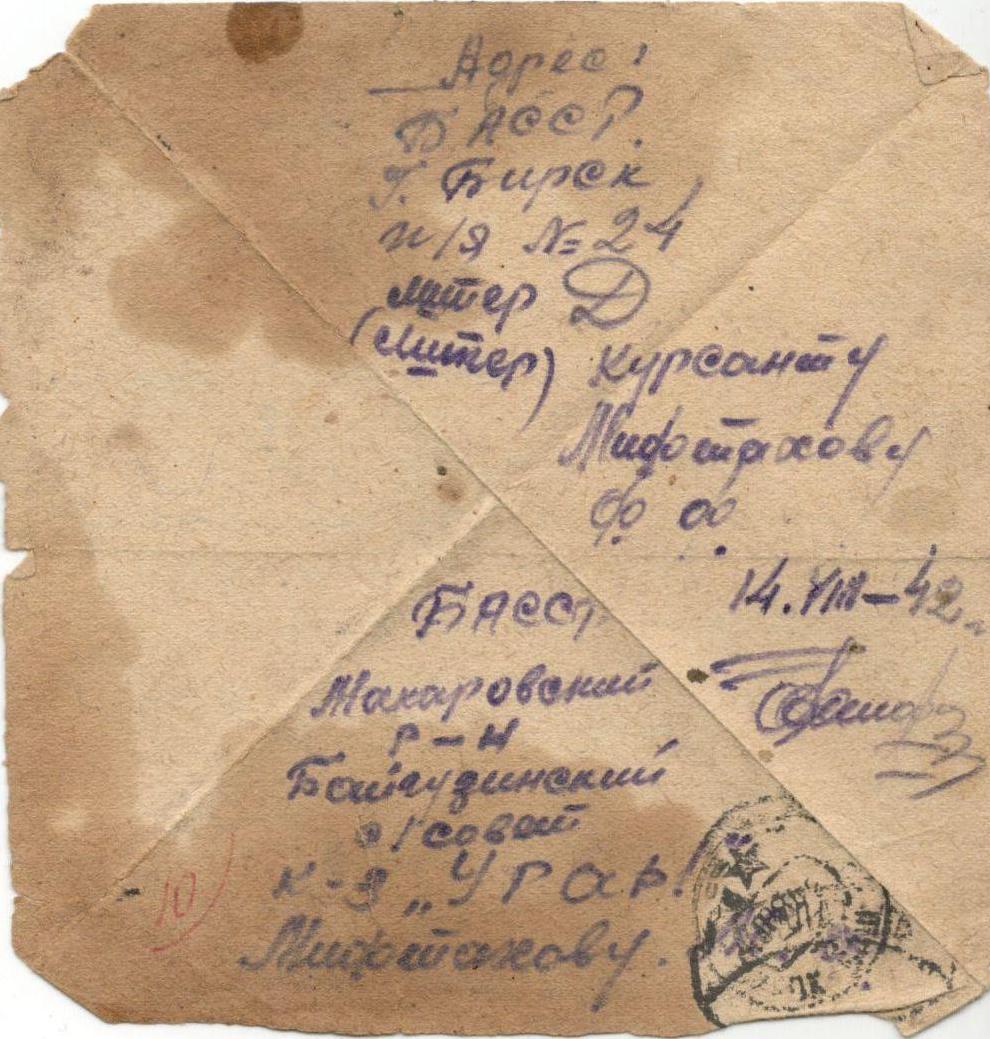 Адрес:
БАССР.
г. Бирск
п/я № 24
литер Д
(Литер) Курсанту
Мифтахову
Ф. Ф.
14.VIII-42
БАССР
Макаровский
р-н
Байгузинский
с/совет
к-з „Урал"
Мифтахову.
10